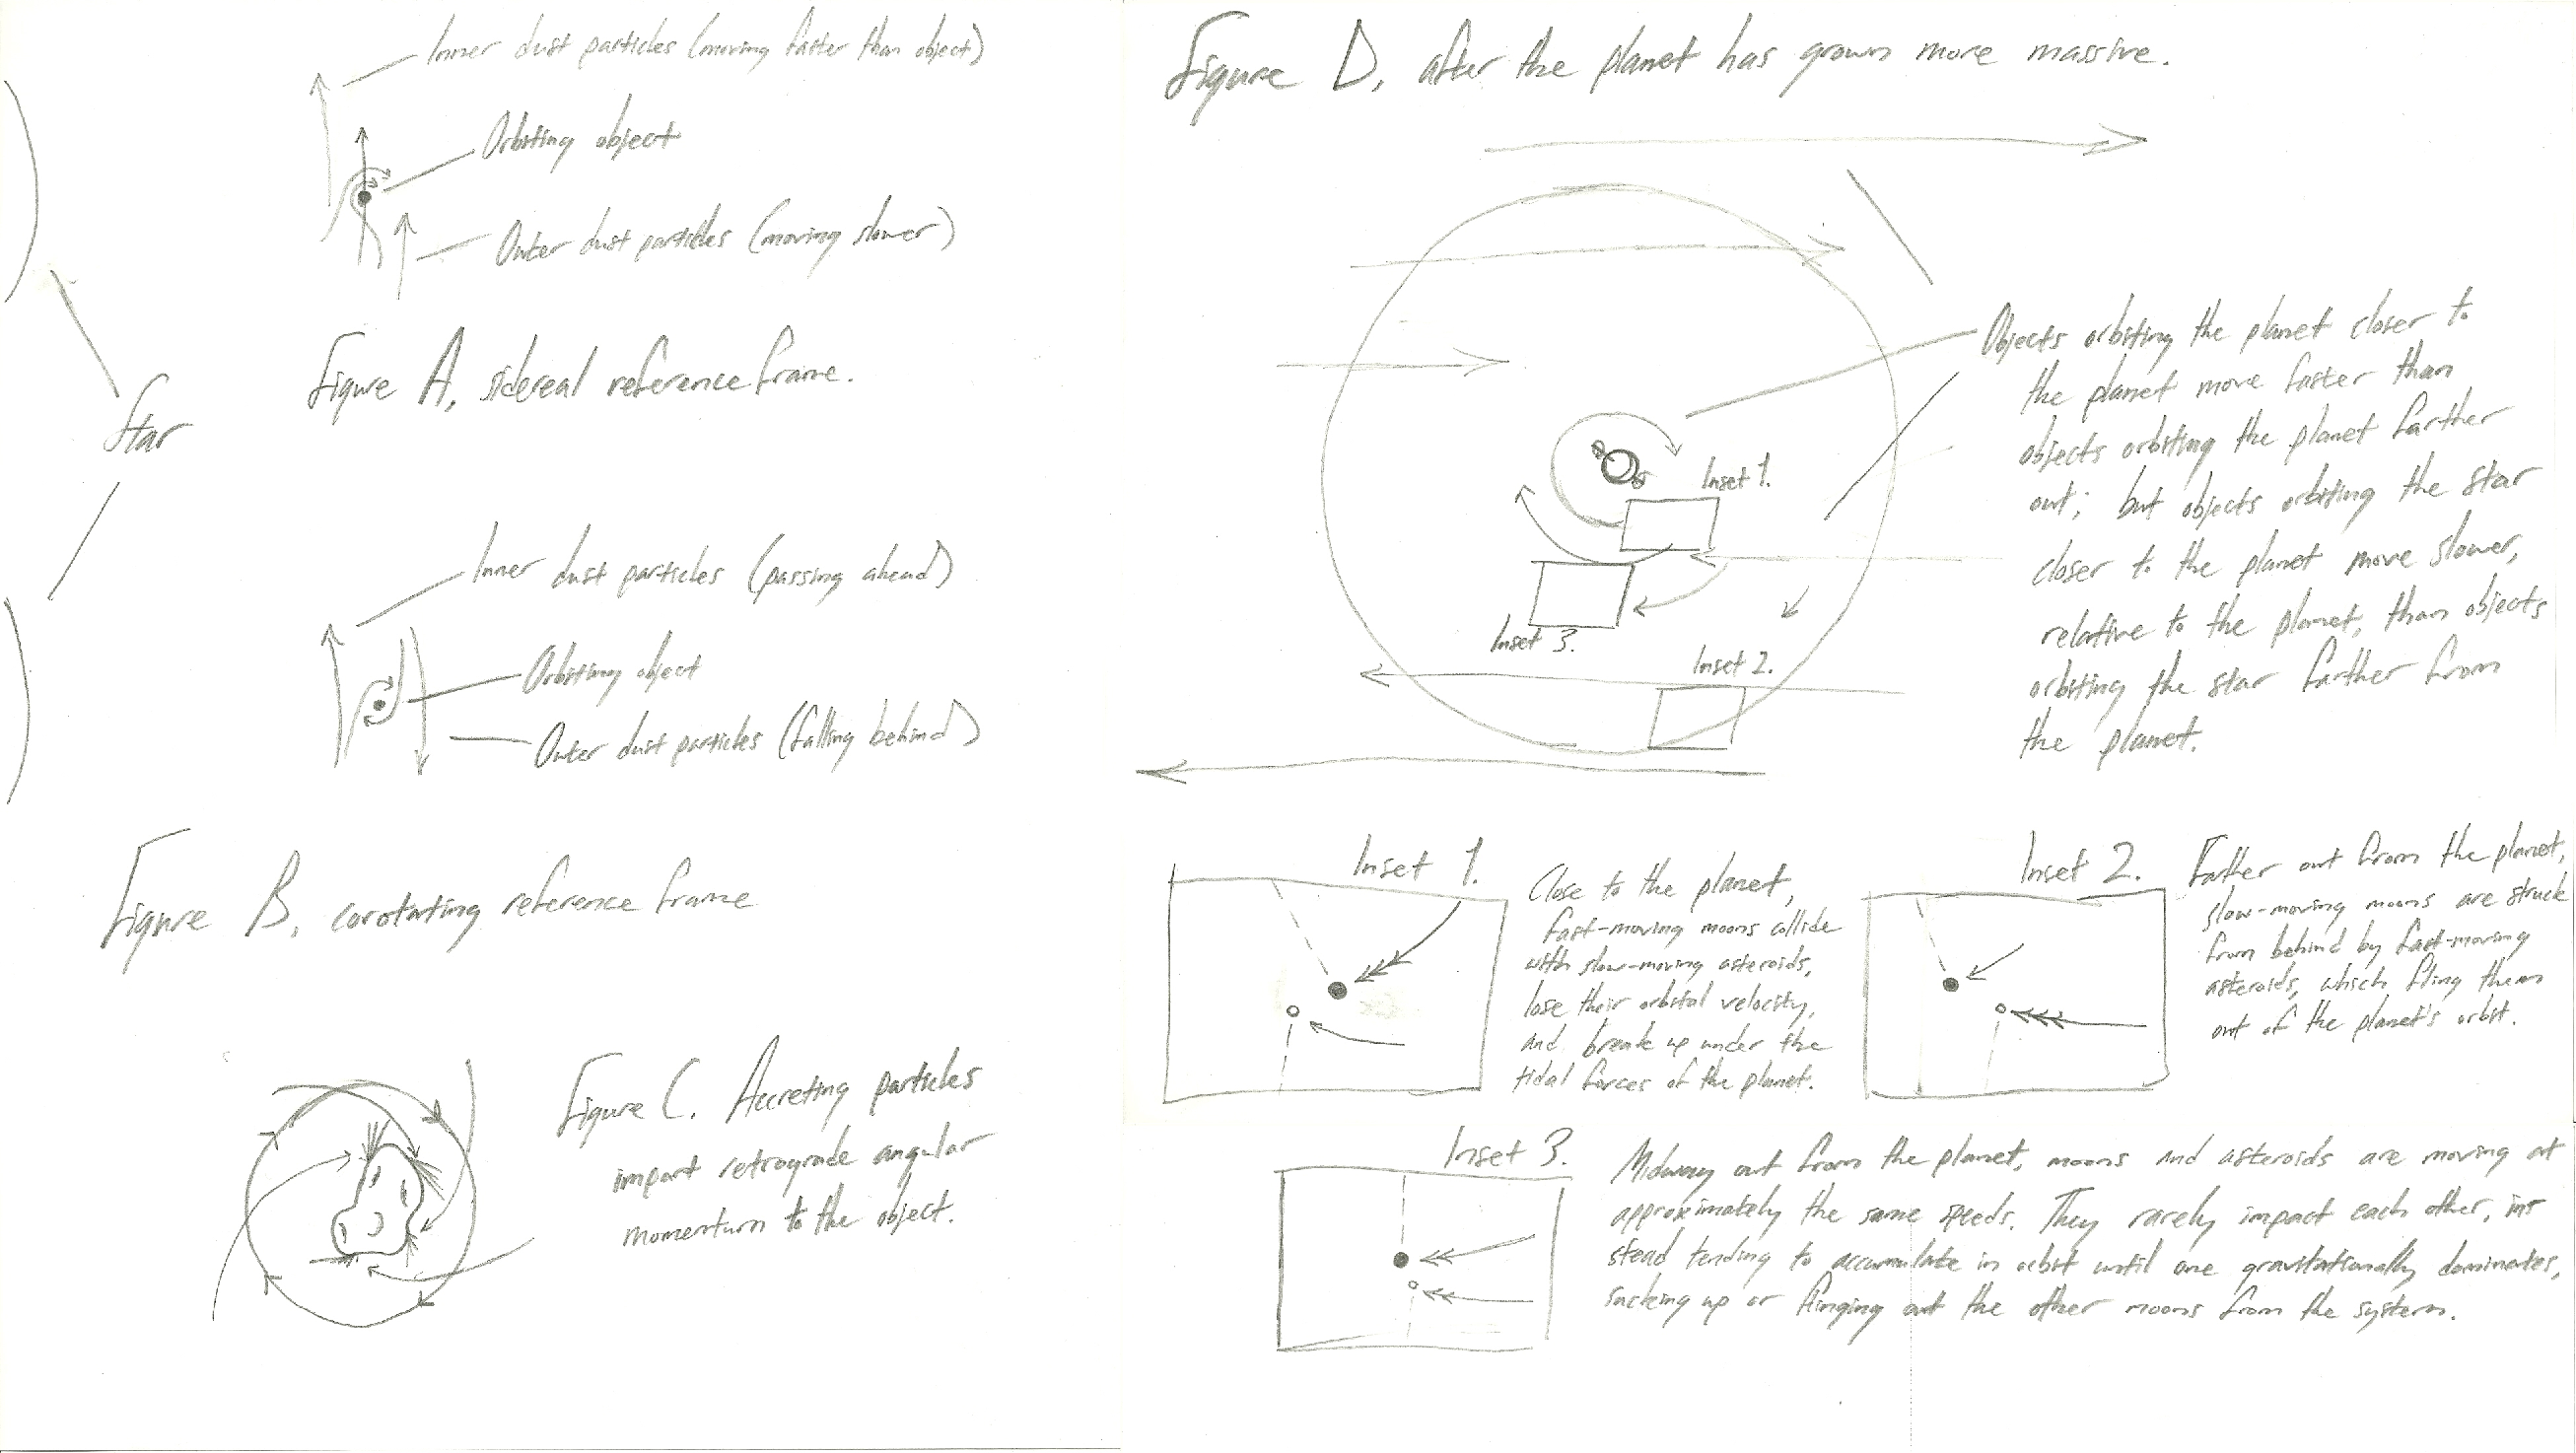 Inner dust particles (moving faster than object)
Orbiting object
Outer dust particles (moving slower)
Figure A, sidereal reference frame.
Star
Inner dust particles (passing ahead)
Orbiting object
Outer dust particles (falling behind)
Figure B, corotating reference frame
Figure C. Accreting particles
impart retrograde angular
momentum to the object.
Figure D, after the planet has grown more massive.
Objects orbiting the planet closer to
the planet move faster than
objects orbiting the planet farther
out; but objects orbiting the star
closer to the planet move slower,
relative to the planet, than objects
orbiting the star farther from
the planet.
Inset 1.
Inset 3.
Inset 2.
Inset 1.
Close to the planet,
fast-moving moons collide
with slow-moving asteroids,
lose their orbital velocity,
and break up under the
tidal forces of the planet.
Inset 2.
Farther out from the planet,
slow-moving moons are struck
from behind by fast-moving
asteroids, which fling them
out of the planet's orbit.
Inset 3.
Midway out from the planet, moons and asteroids are moving at
approximately the same speeds. They rarely impact each other, in-
stead tending to accumulate in orbit until one gravitationally dominates,
sucking up or flinging out the other moons from the system.